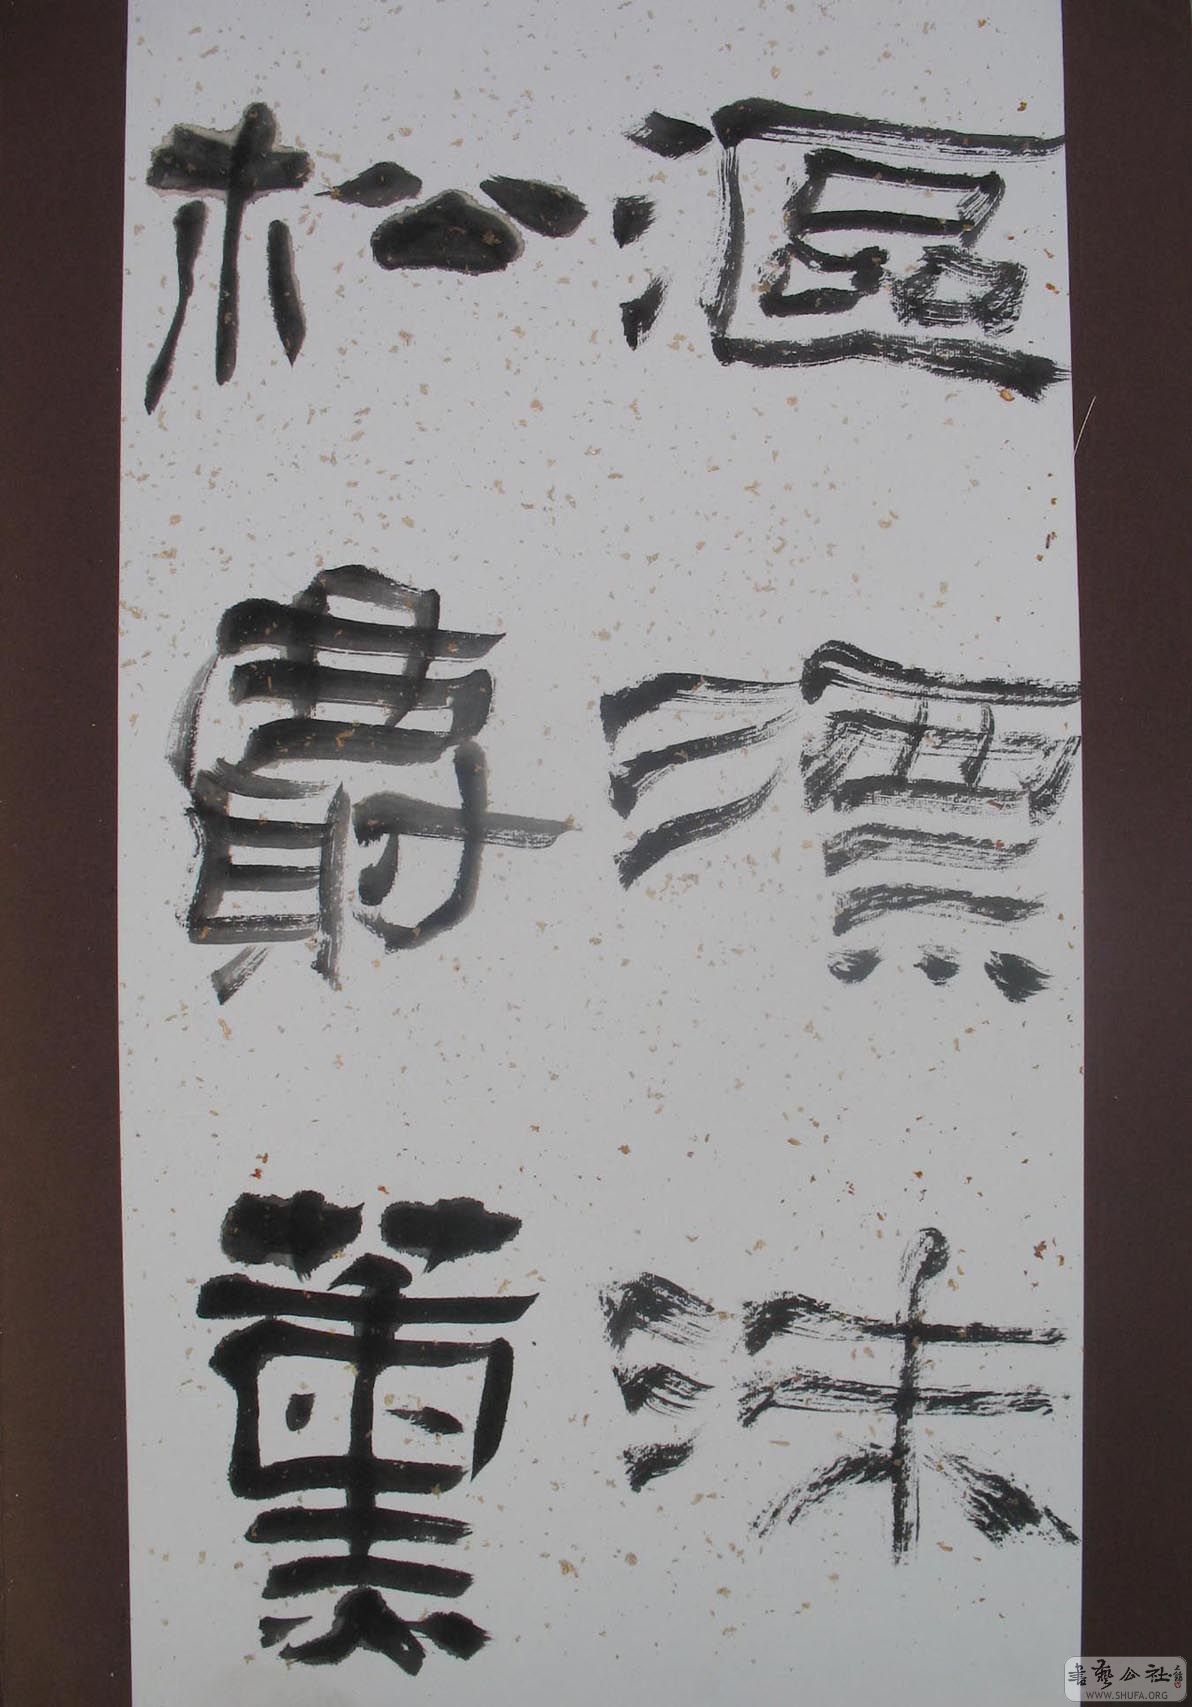 漚漂沫
松薰
書藝公社
WWW.SHUFA.ORG